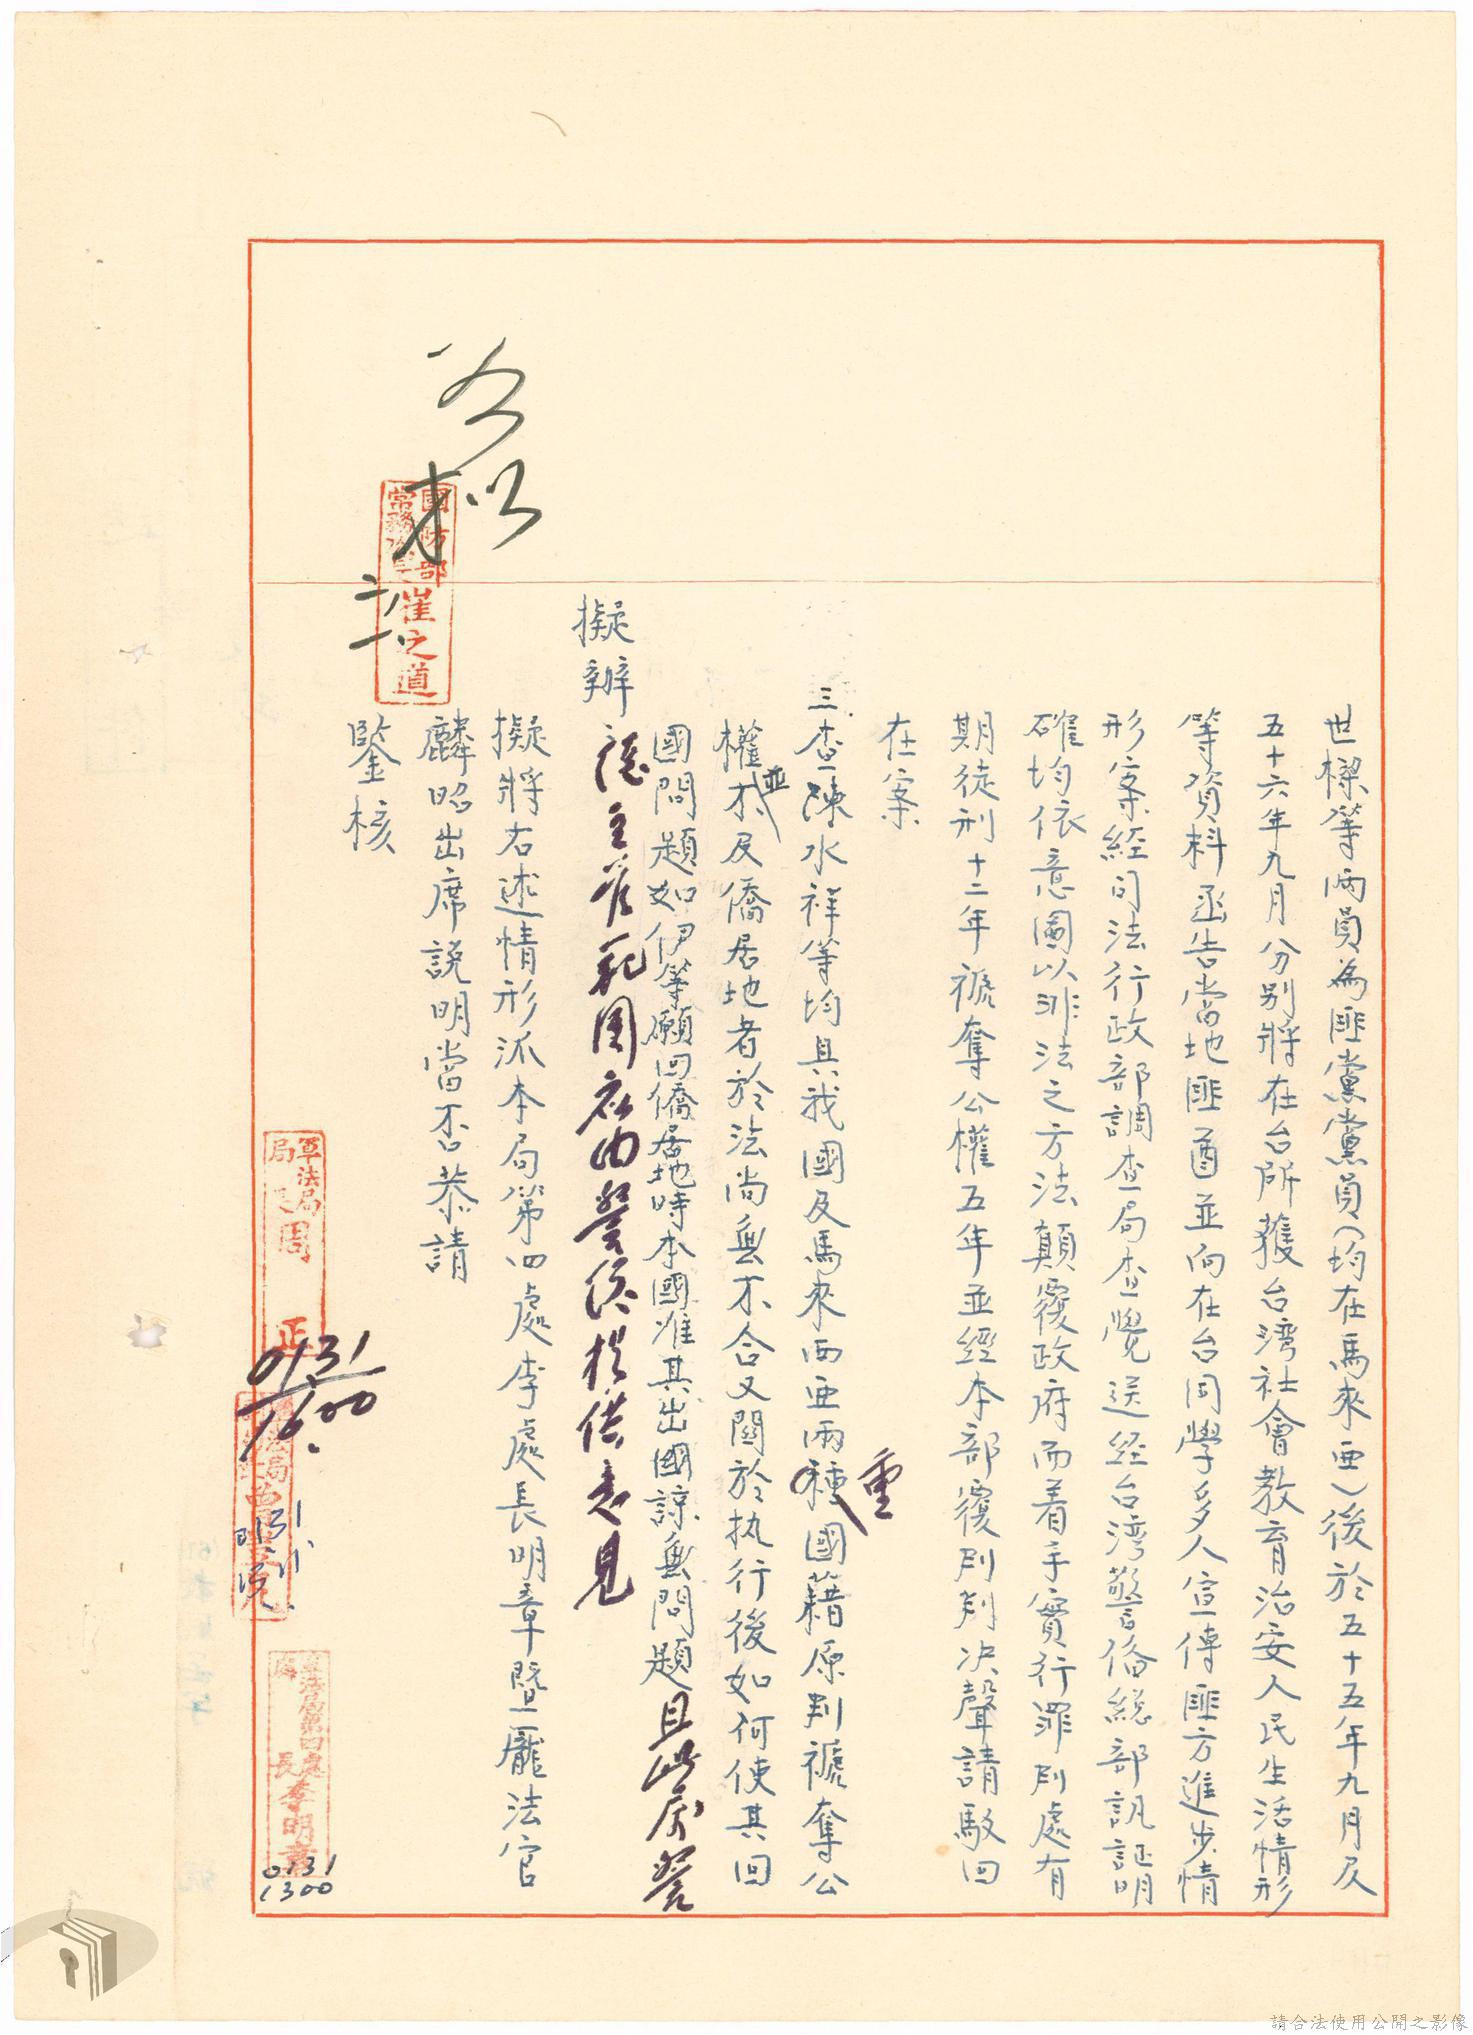 世樑等兩員為匪黨黨員(均在馬來亞)後於五十五年九月及
五十六年九月分別將在台所獲台湾社會教育治安人民生活情形
等資料函告當地匪酋並向在台同學多人宣傳匪方進步情
形案經司法行政部調查局查覺送經台湾警俻総部訊証明
確均依意圖以非法之方法顛覆政府而着手實行罪判處有
期徒刑十二年褫奪公權五年並經本部覆判判决聲請駁回
在案
三.查陳水祥等均具我國及馬來西亜兩種國籍原判褫奪公
重
權不及僑居地者於法尚無不合又関於执行後如何使其回
並
國問題如伊等願回僑居地時本國准其出國諒無問題且此屬警
總主管範圍应由警總提供意見
擬辦
擬將右述情形派本局第四處李處長明章暨龎法官
麟昭出席説明當否恭請
鑒核
如擬
二/一
國防部
常務次長
崔之道
軍法局
局長周 正
0131/1600
0131
軍法局第四處
處長李明章
0131
1300
請合法使用公開之影像